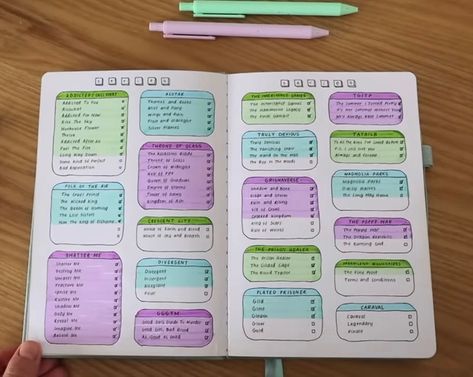 ADDICTED/CALLOWAY
Addicted To You
Ricochet
Addicted for Now
Kiss The Sky
Hothouse Flower
Thrive
Addicted After All
Fuel the Fire
Long Way Down
Some Kind of Perfect
FOLK OF THE AIR
The Cruel Prince
The Wicked King
The Queen of Nothing
The Lost Sisters
How the King of Elfhame
SHATTER ME
Shatter Me
Destroy Me
Unravel Me
Fracture Me
Ignite Me
Restore Me
Shadow Me
Defy Me
Reveal Me
Imagine Me
Believe Me
ACOTAR
Thorns and Roses
Mist and Fury
Wings and Ruin
Frost and Starlight
Silver Flames
THRONE OF GLASS
The Assassins Blade
Throne of Glass
Crown of Midnight
Heir of Fire
Queen of Shadows
Empire of Storms
Tower of Dawn
Kingdom of Ash
CRESCENT CITY
House of Earth and Blood
House of Sky and Breath
DIVERGENT
Divergent
Insurgent
Allegiant
Four
GGGTM
Good Girl's Guide To Murder
Good Girl, Bad Blood
As Good As Dead
THE INHERITANCE GAMES
The Inheritance Games
The Hawthorne Legacy
The Final Gambit
TRULY DEVIOUS
Truly Devious
The Vanishing Stair
The Hand on the Wall
The Box in the Woods
GRISHAVERSE
Shadow and Bone
Siege and Storm
Ruin and Rising
Six of Crows
Crooked Kingdom
King of Scars
Rule of Wolves
THE PRISON HEALER
The Prison Healer
The Gilded Cage
The Blood Traitor
PLATED PRISONER
Gild
Glint
Gleam
Glow
Gold
TSITP
The Summer I Turned Pretty
It's Not Summer Without You
We'll Always Have Summer
TATBILB
To All the Boys I've Loved Before
P.S. I Still Love You
Always and Forever
MAGNOLIA PARKS
Magnolia Parks
Daisy Haites
The Long Way Home
THE POPPY WAR
The Poppy War
The Dragon Republic
The Burning God
The Fine Print
Terms and Conditions
CARAVAL
Caraval
Legendary
Finale